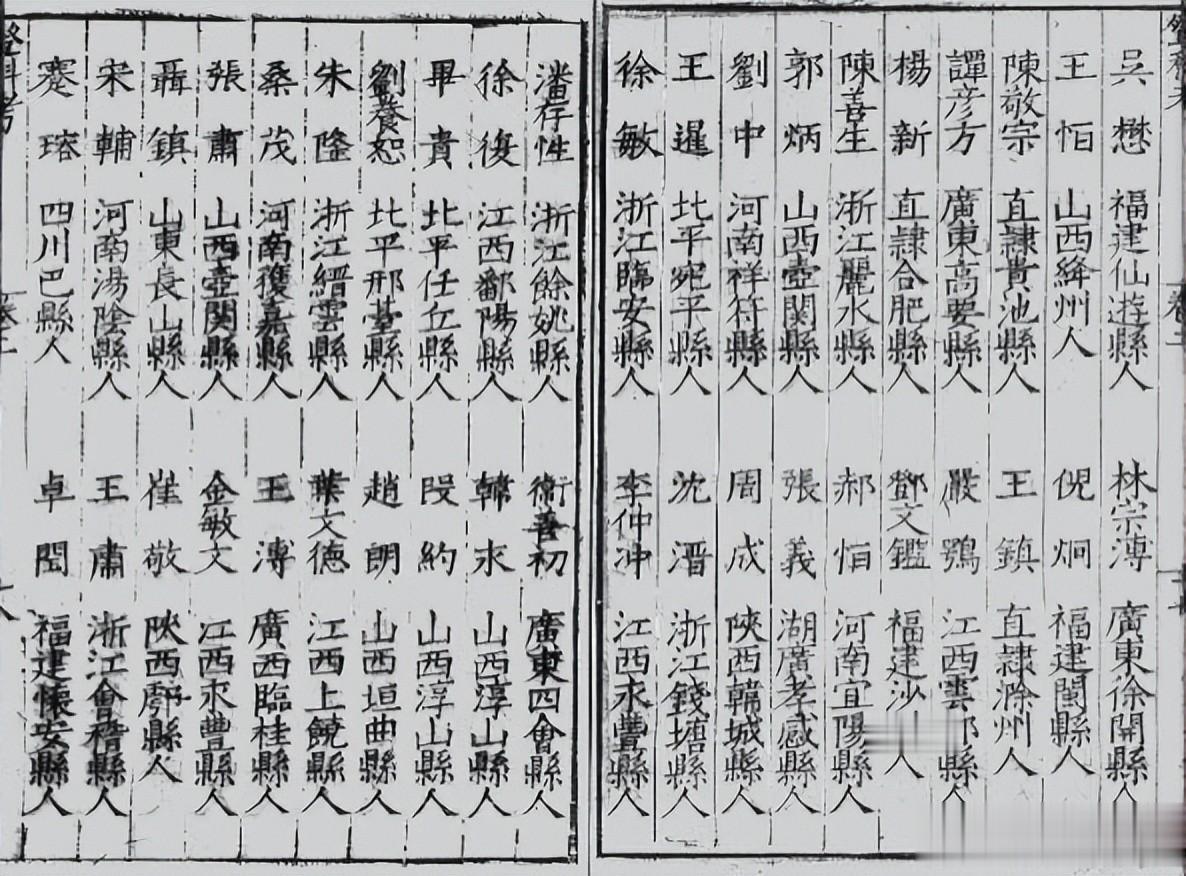 吳懋 福建仙遊縣人 林宗溥 廣東徐聞縣人
王恒 山西絳州人 倪炯 福建閩縣人
陳敬宗 直隸貴池縣人 王鎮 直隸滁州人
譚彥方 廣東高要縣人 嚴鶚 江西雩都縣人
楊新 直隸合肥縣人 鄧文鑑 福建沙 人
陳善生 浙江麗水縣人 郝恒 河南宜陽縣人
郭炳 山西壺関縣人 張義 湖廣孝感縣人
劉中 河南祥符縣人 周成 陝西韓城縣人
王暹 北平宛平縣人 沈潛 浙江錢塘縣人
徐敏 浙江臨安縣人 李仲冲 江西永豐縣人
潘存性 浙江餘姚縣人 衛善初 廣東四會縣人
徐復 江西鄱陽縣人 韓永 山西淳山縣人
畢貴 北平任丘縣人 段約 山西淳山縣人
劉養恕 北平邢臺縣人 趙朗 山西垣曲縣人
朱隆 浙江縉雲縣人 葉文德 江西上饒縣人
桑茂 河南獲嘉縣人 王溥 廣西臨桂縣人
張肅 山西壺関縣人 金敏文 江西永豐縣人
聶鎮 山東長山縣人 崔敬 陝西鄠縣人
宋輔 河南湯陰縣人 王肅 浙江會稽縣人
蹇瑢 四川巴縣人 卓閏 福建懷安縣人
登科考